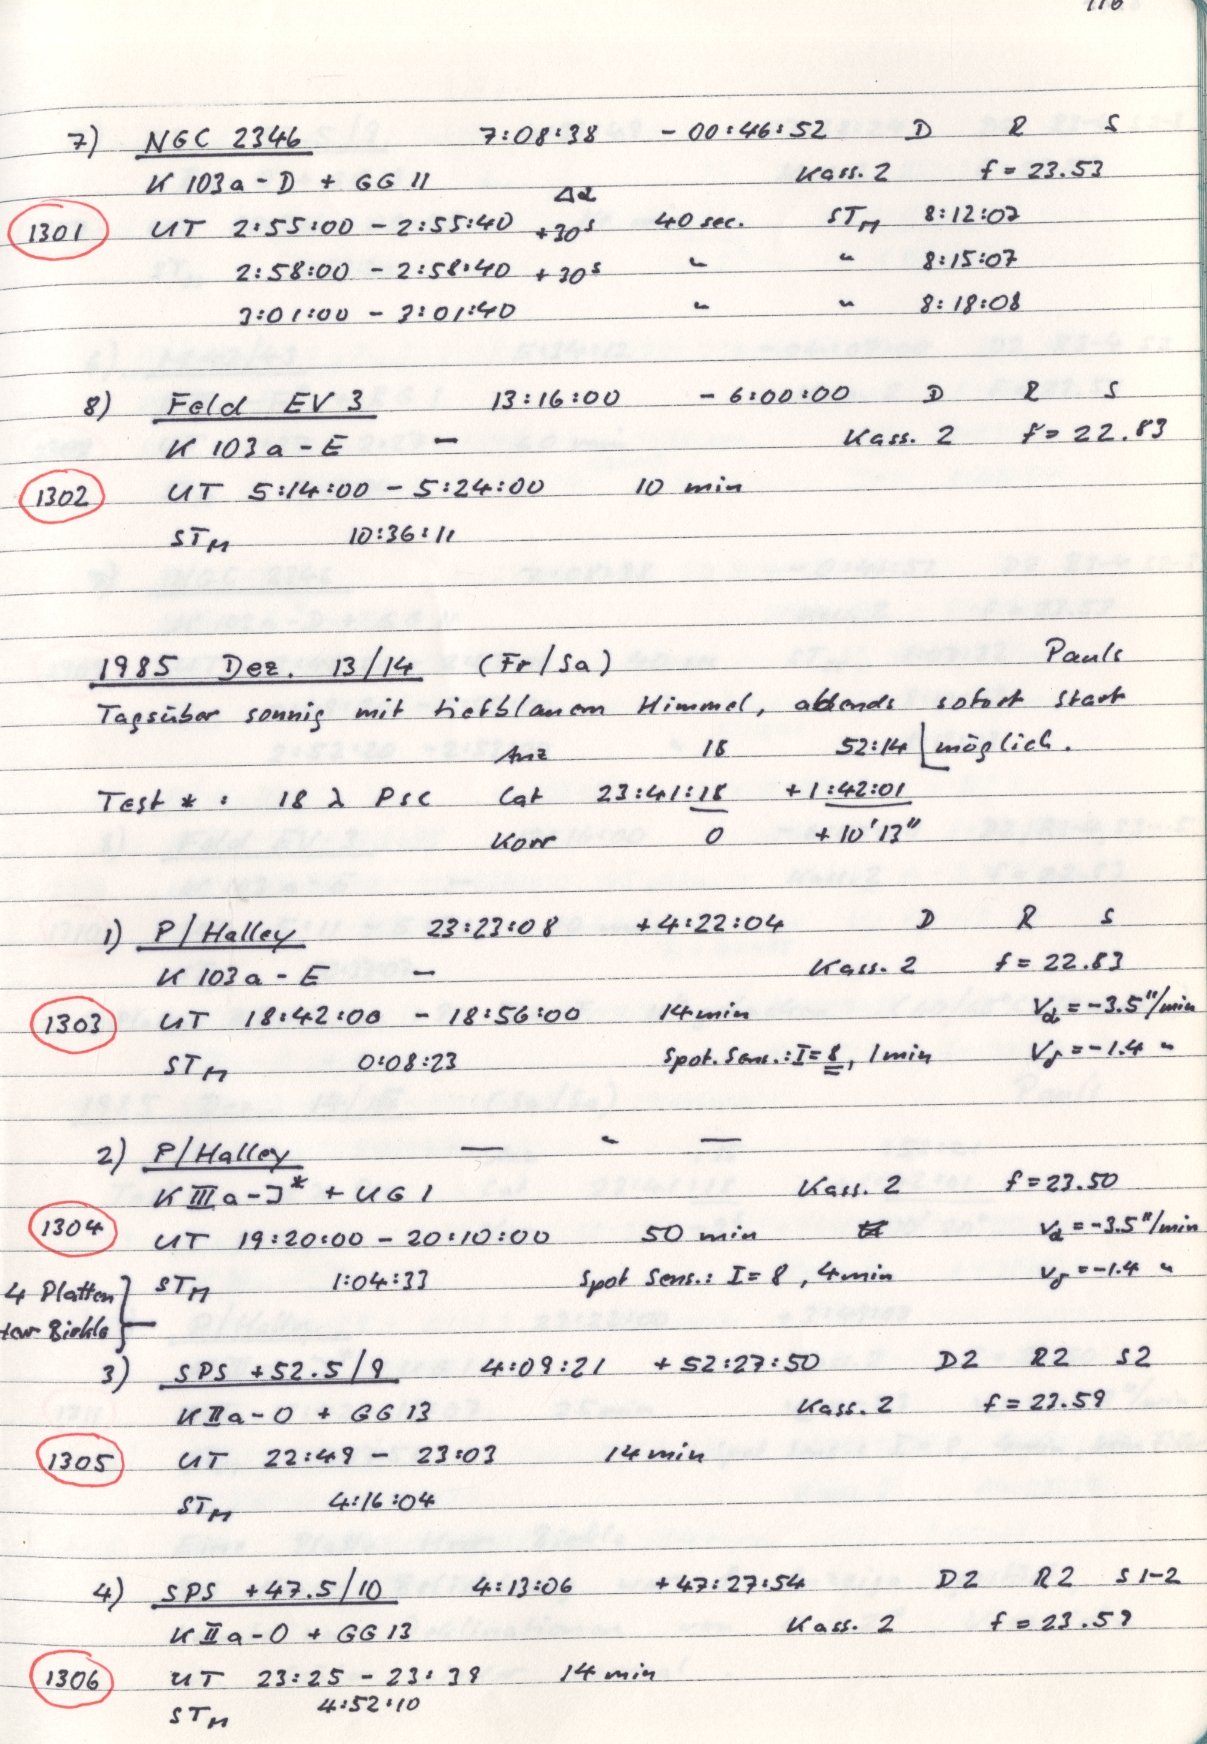 116
7) NGC 2346 7:08:38 - 00:46:52 D R S
K 103a-D + GG 11 Kass. 2 f = 23.53
Δα
1301 UT 2:55:00 - 2:55:40 +30s 40 sec. STM 8:12:07
2:58:00 - 2:58:40 +30s " " 8:15:07
3:01:00 - 3:01:40 " " 8:18:08
8) Feld EV 3 13:16:00 - 6:00:00 D R S
K 103a-E — Kass. 2 f = 22.83
1302 UT 5:14:00 - 5:24:00 10 min
STM 10:36:11
1985 Dez. 13/14 (Fr/Sa) Pauls
Tagsüber sonnig mit tiefblauem Himmel, abends sofort Start
Anz 18 52:14 möglich.
Test * : 18 λ Psc Cat 23:41:18 +1:42:01
Korr 0 +10'13"
1) P/Halley 23:23:08 +4:22:04 D R S
K 103a-E — Kass. 2 f = 22.83
1303 UT 18:42:00 - 18:56:00 14 min Vα = -3.5"/min
STM 0:08:23 Spot. Sens.: I=8, 1 min Vδ = -1.4 "
2) P/Halley — " —
K IIIa-J* + UG 1 Kass. 2 f = 23.50
1304 UT 19:20:00 - 20:10:00 50 min Vα = -3.5"/min
4 Platten STM 1:04:33 Spot Sens.: I=8, 4 min Vδ = -1.4 "
Birkle
3) SPS +52.5/9 4:09:21 +52:27:50 D2 R2 S2
K IIa-O + GG 13 Kass. 2 f = 23.59
1305 UT 22:49 - 23:03 14 min
STM 4:16:04
4) SPS +47.5/10 4:13:06 +47:27:54 D2 R2 S1-2
K IIa-O + GG 13 Kass. 2 f = 23.59
1306 UT 23:25 - 23:39 14 min
STM 4:52:10